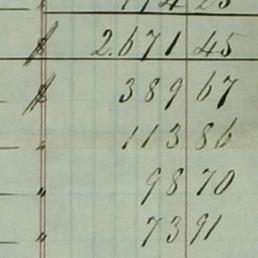 $ 2.671 45
$ 389 67
" 113 86
" 98 70
" 73 91